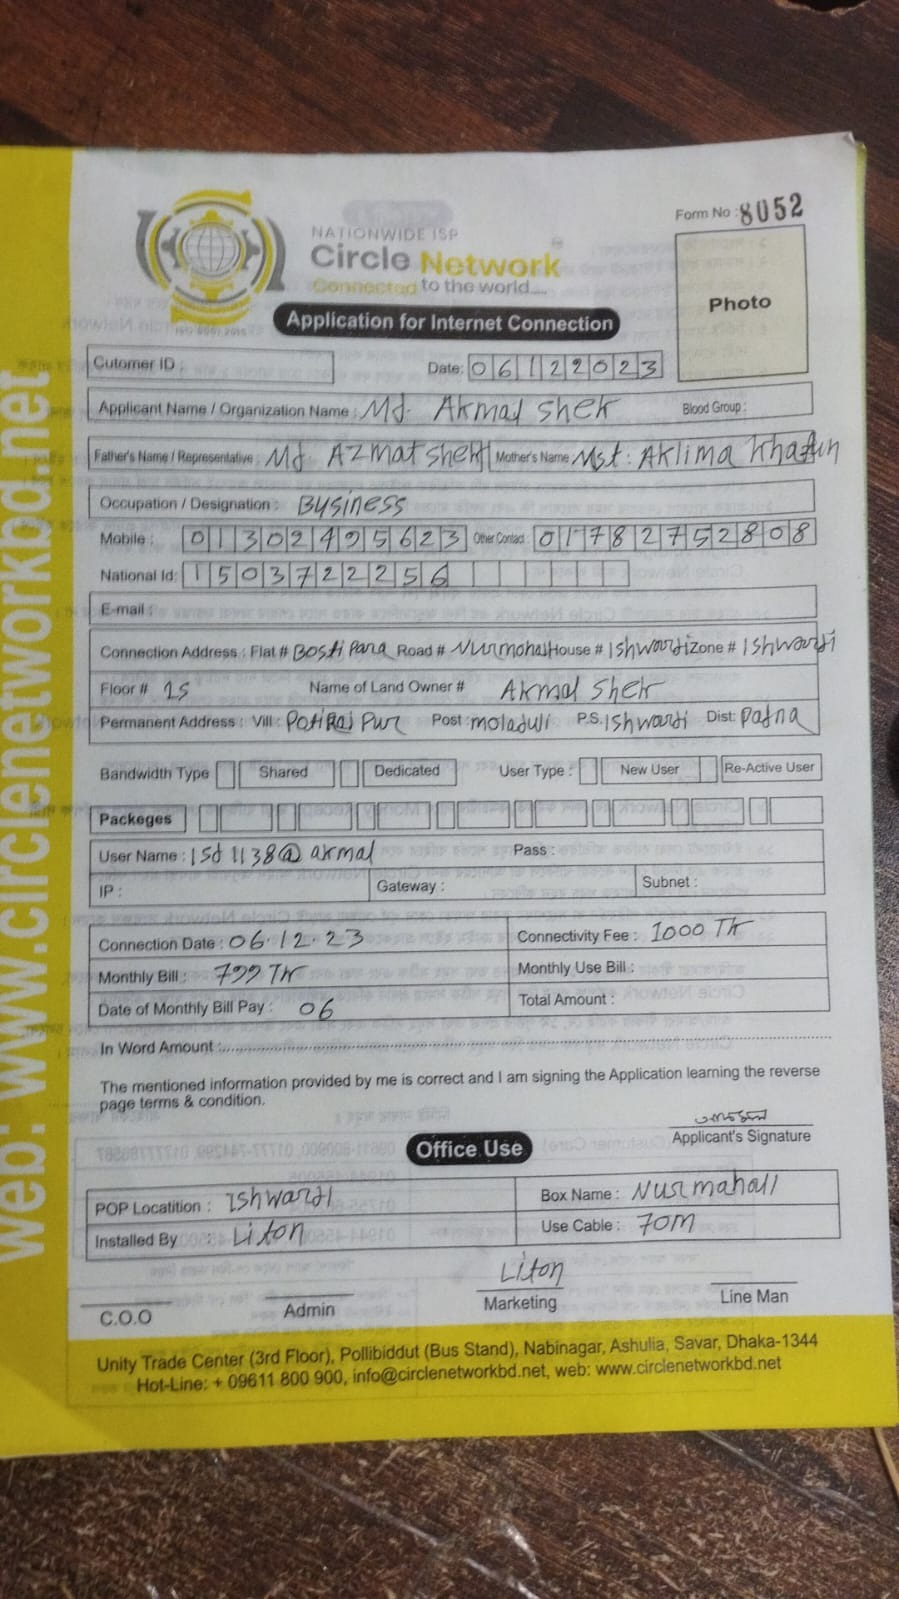 Form No : 8052
NATIONWIDE ISP
Circle Network
Connected to the world.....
ISO 9001:2015
Photo
Application for Internet Connection
Cutomer ID : Date: 06122023
Applicant Name / Organization Name : Md. Akmal Shek Blood Group :
Father's Name / Representative : Md. AZmat Shekh Mother's Name Mst: Aklima Khatun
Occupation / Designation : Business
Mobile : 01302495623 Other Contact : 01782752808
National Id: 1503722256
E-mail :
Connection Address : Flat # Bosti Para Road # Nurmohal House # Ishwardi Zone # Ishwardi
Floor # Name of Land Owner # Akmal Shek
Permanent Address : Vill : Potiraj Pur Post : moladuli P.S. Ishwardi Dist: Pabna
Bandwidth Type Shared Dedicated User Type : New User Re-Active User
Packeges
User Name : 1138@akmal Pass :
IP : Gateway : Subnet :
Connection Date : 06.12.23 Connectivity Fee : 1000 Tk
Monthly Bill : 799 Tk Monthly Use Bill :
Date of Monthly Bill Pay : 06 Total Amount :
In Word Amount :
The mentioned information provided by me is correct and I am signing the Application learning the reverse
page terms & condition.
Applicant's Signature
Office Use
POP Locatition : Ishwardi Box Name : Nurmahall
Installed By : Liton Use Cable : 70m
Liton
C.O.O Admin Marketing Line Man
Unity Trade Center (3rd Floor), Pollibiddut (Bus Stand), Nabinagar, Ashulia, Savar, Dhaka-1344
Hot-Line: + 09611 800 900, info@circlenetworkbd.net, web: www.circlenetworkbd.net
web: www.circlenetworkbd.net